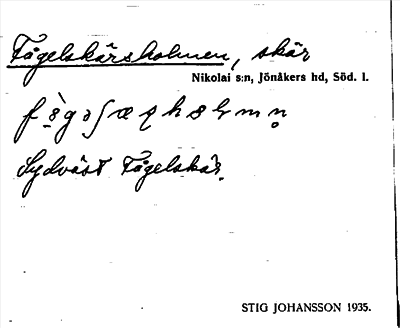 Fågelskärsholmen, skär
Nikolai s:n, Jönåkers hd, Söd. l.
Sydväst Fågelskär.
STIG JOHANSSON 1935.